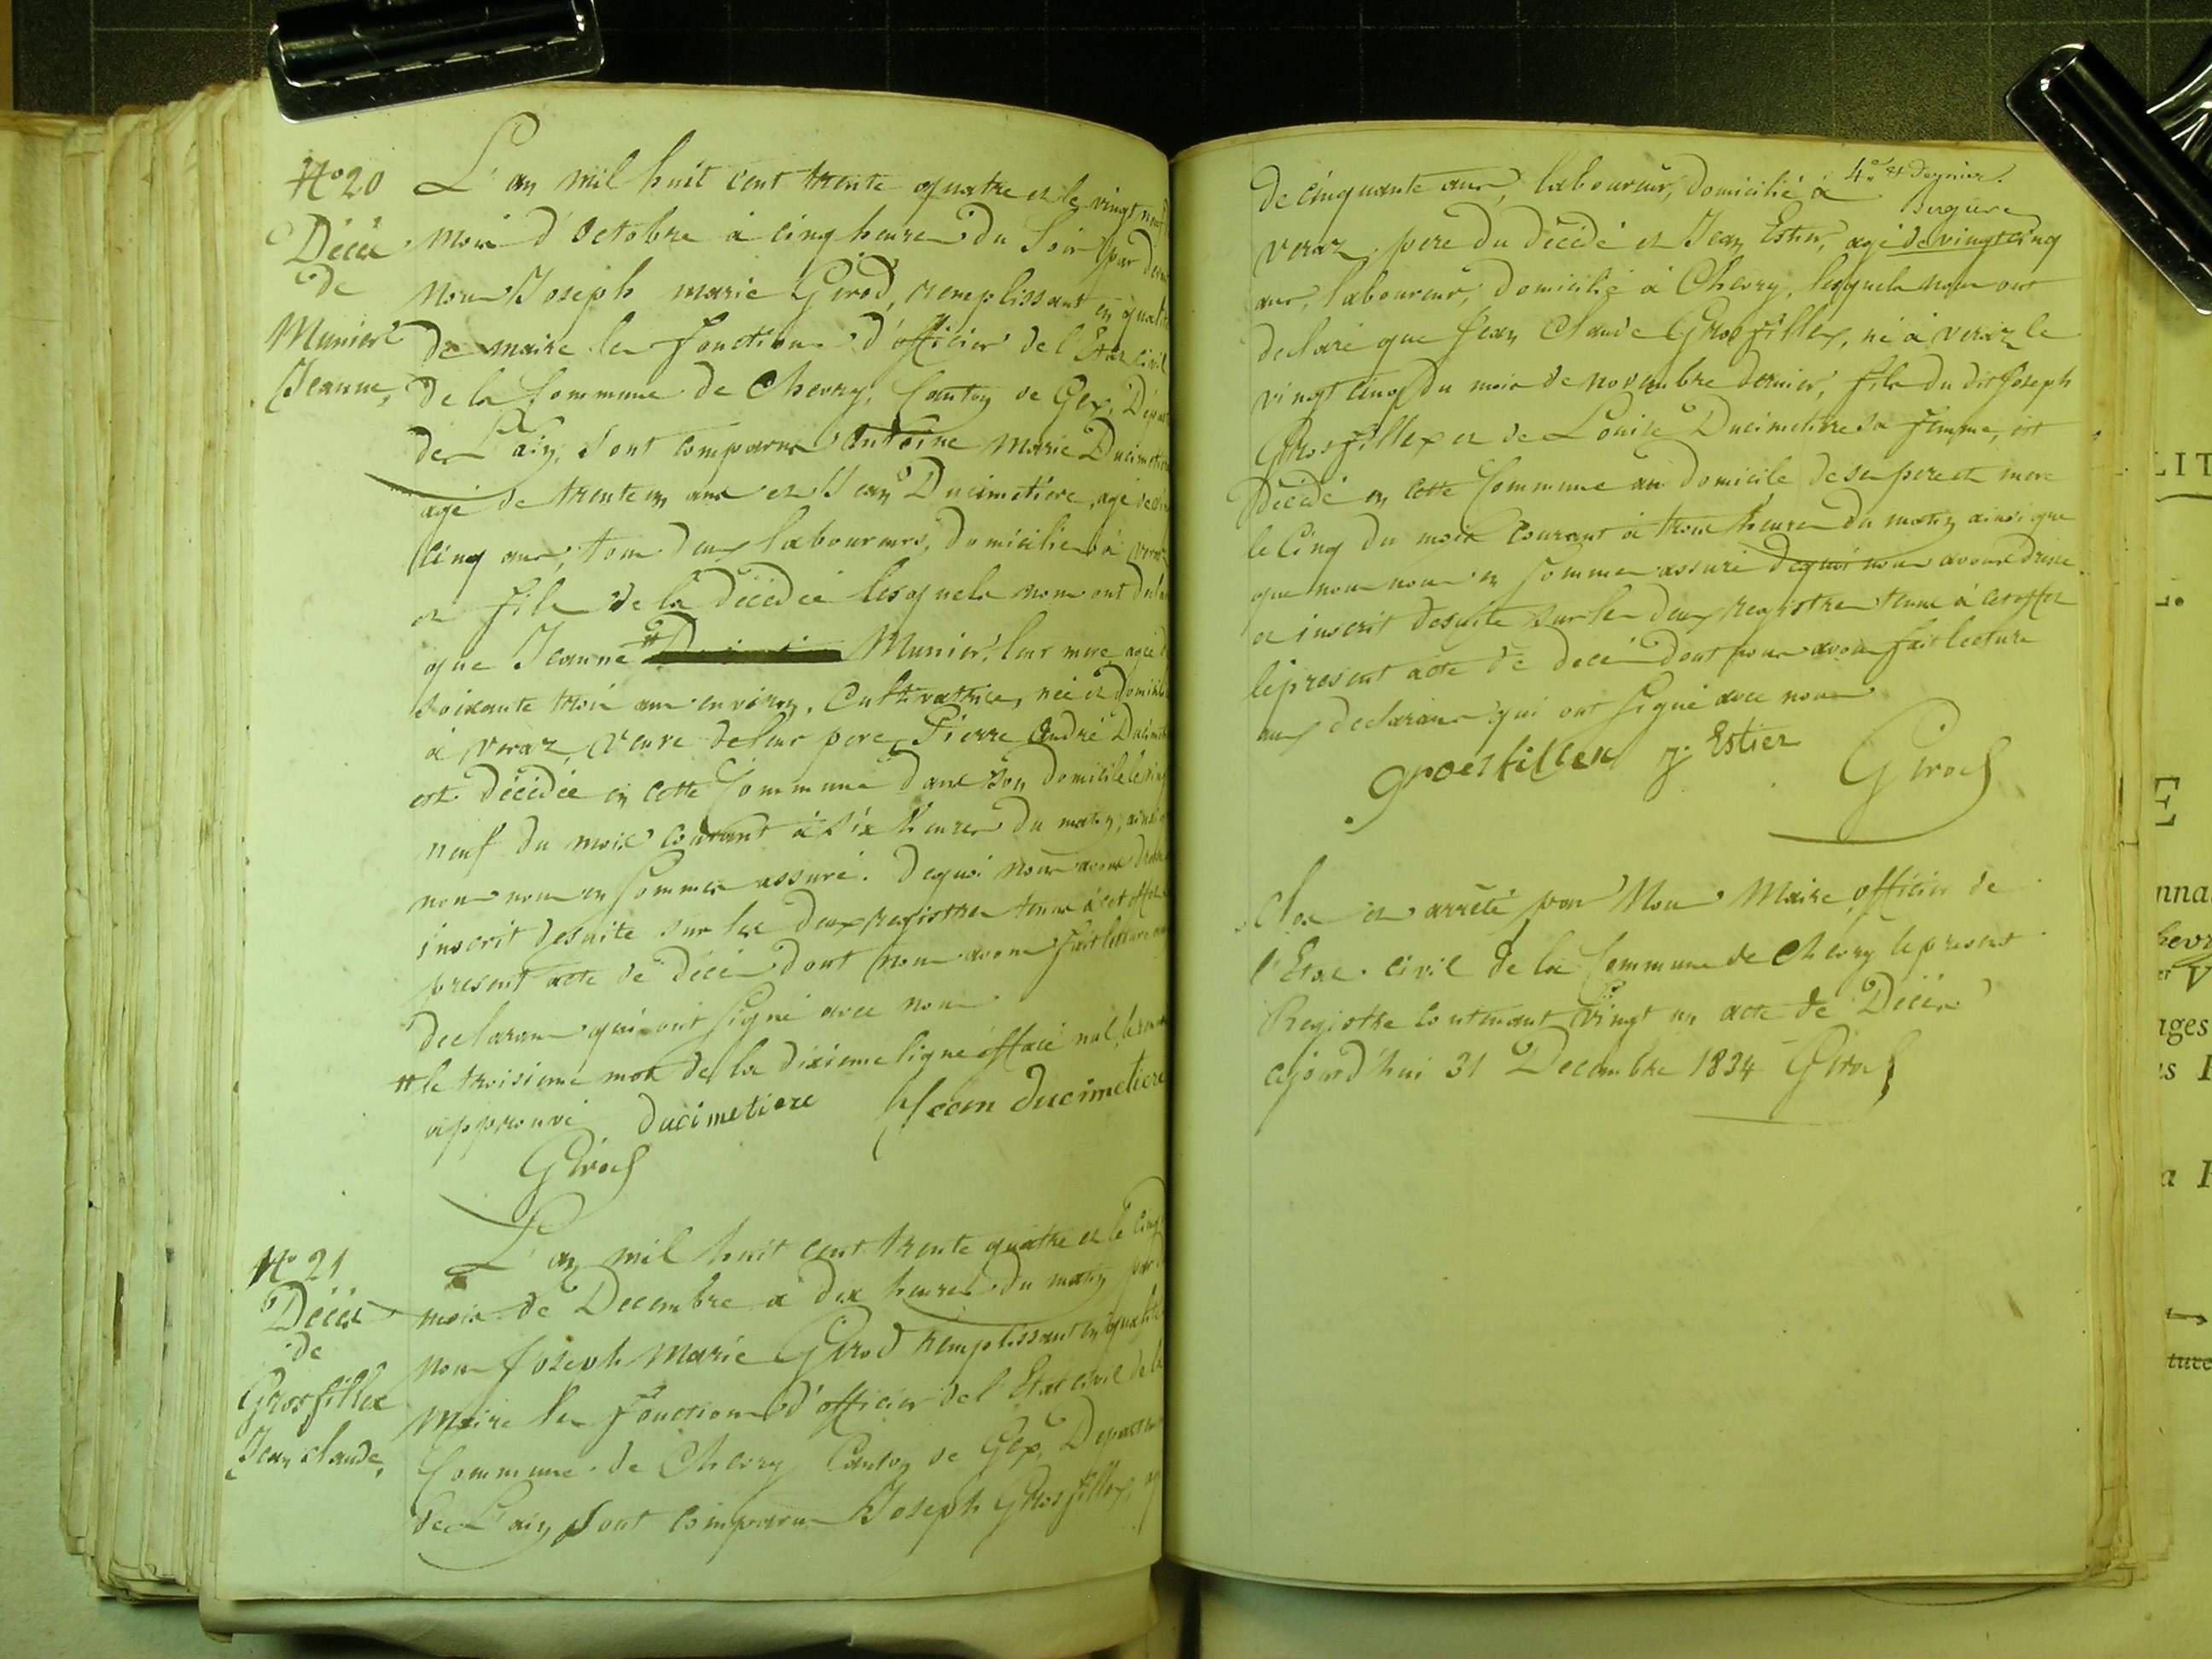 N° 20
Décès
de
Munier
Jeanne,
L'an mil huit cent trente quatre et le vingt neuf
mois d'Octobre à cinq heures du Soir par devant
nous Joseph marie Girod, remplissant en qualité
de maire les fonctions d'officier de l'Etat civil
de la Commune de Chevry, Canton de Gex, Dépar
de L'ain, sont comparus Antoine Marie Ducimetiere
agé de trente un ans et Jean Ducimetiere, agé de
cinq ans, tous deux laboureurs, domiciliés à veraz
et fils de la décédée lesquels nous ont décla
que Jeanne # Munier, leur mere agée d
soixante trois ans environ, Cultivatrice, née et domicili
à veraz, veuve de leur pere, Pierre André Ducimet
est décédée en cette Commune dans son domicile le vingt
neuf du mois courant à six heures du matin, ainsi
nous nous en sommes assuré. Dequoi nous avons dressé
inscrit desuite sur les deux registres tenus à cet effet
présent acte de décès dont nous avons fait lecture aux
declarans qui ont signé avec nous
# le troisieme mot de la dixieme ligne éffacé nul,
approuvé Ducimetiere Jean ducimetiere
Girod
N° 21
Décès
de
Grosfillex
Jean claude,
L'an mil huit cent trente quatre et le cinq
mois de Decembre à dix heures du matin par d
nous Joseph Marie Girod remplissant en qualité
Maire les fonctions d'officier de l'Etat civil de la
Commune de Chevry Canton de Gex, Departem
de L'ain, sont comparus Joseph Grosfillex, agé
4e. & dernier.
de cinquante ans, laboureur, domicilié à
veraz, pere du décédé et Jean Estier, agé de vingt cinq
ans, laboureur, domicilié à Chevry, lesquels nous ont
declaré que Jean Claude Grosfillex, né à veraz le
vingt cinq du mois de novembre dernier, fils du dit Joseph
Grosfillex et de Louise Ducimetiere sa femme, est
décédé en cette Commune au domicile de ses pere et mere
le Cinq du mois courant à trois heures du matin ainsi que
que nous nous en sommes assuré dequoi nous avons dressé
et inscrit desuite sur les deux registres tenus à cet effet
le present acte de décès dont nous avons fait lecture
aux declarans qui ont signé avec nous
groesfillex j. Estier Girod
Clos et arrêté par Nous Maire officier de
l'Etat civil de la Commune de Chevry le present
Registre contenant vingt un acte de Décès
cejourd'hui 31 Decembre 1834 Girod
LIT
E
nna
hevr
V
ages
a
ture